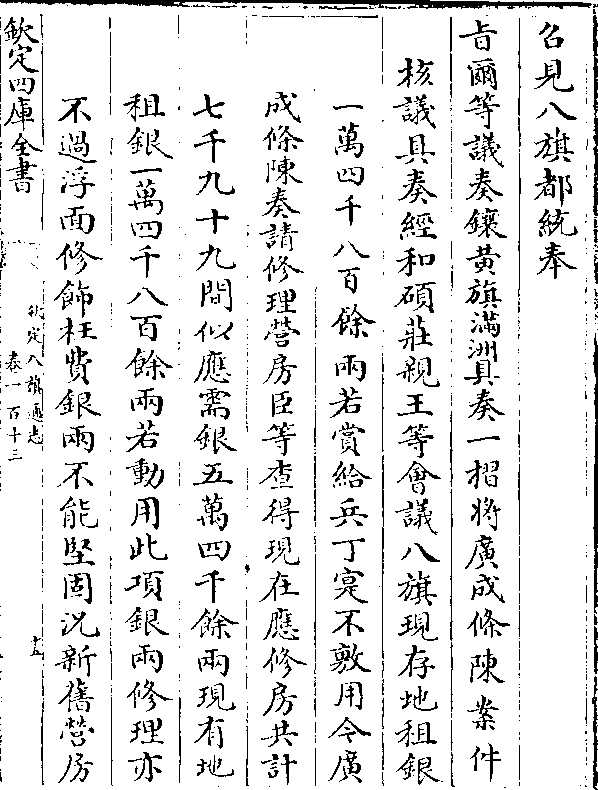 召見八旗都統奉
㫖爾等議奏鑲黃旗滿洲具奏一摺將廣成條陳案件
核議具奏經和碩莊親王等㑹議八旗現存地租銀
一萬四千八百餘兩若賞給兵丁寔不敷用今廣
成條陳奏請修理營房臣等查得現在應修房共計
七千九十九間似應需銀五萬四千餘兩現有地
租銀一萬四千八百餘兩若動用此項銀兩修理亦
不過浮面修飾枉費銀兩不能堅固況新舊營房
欽定四庫全書
欽定八旗通志
卷一百十三
十五